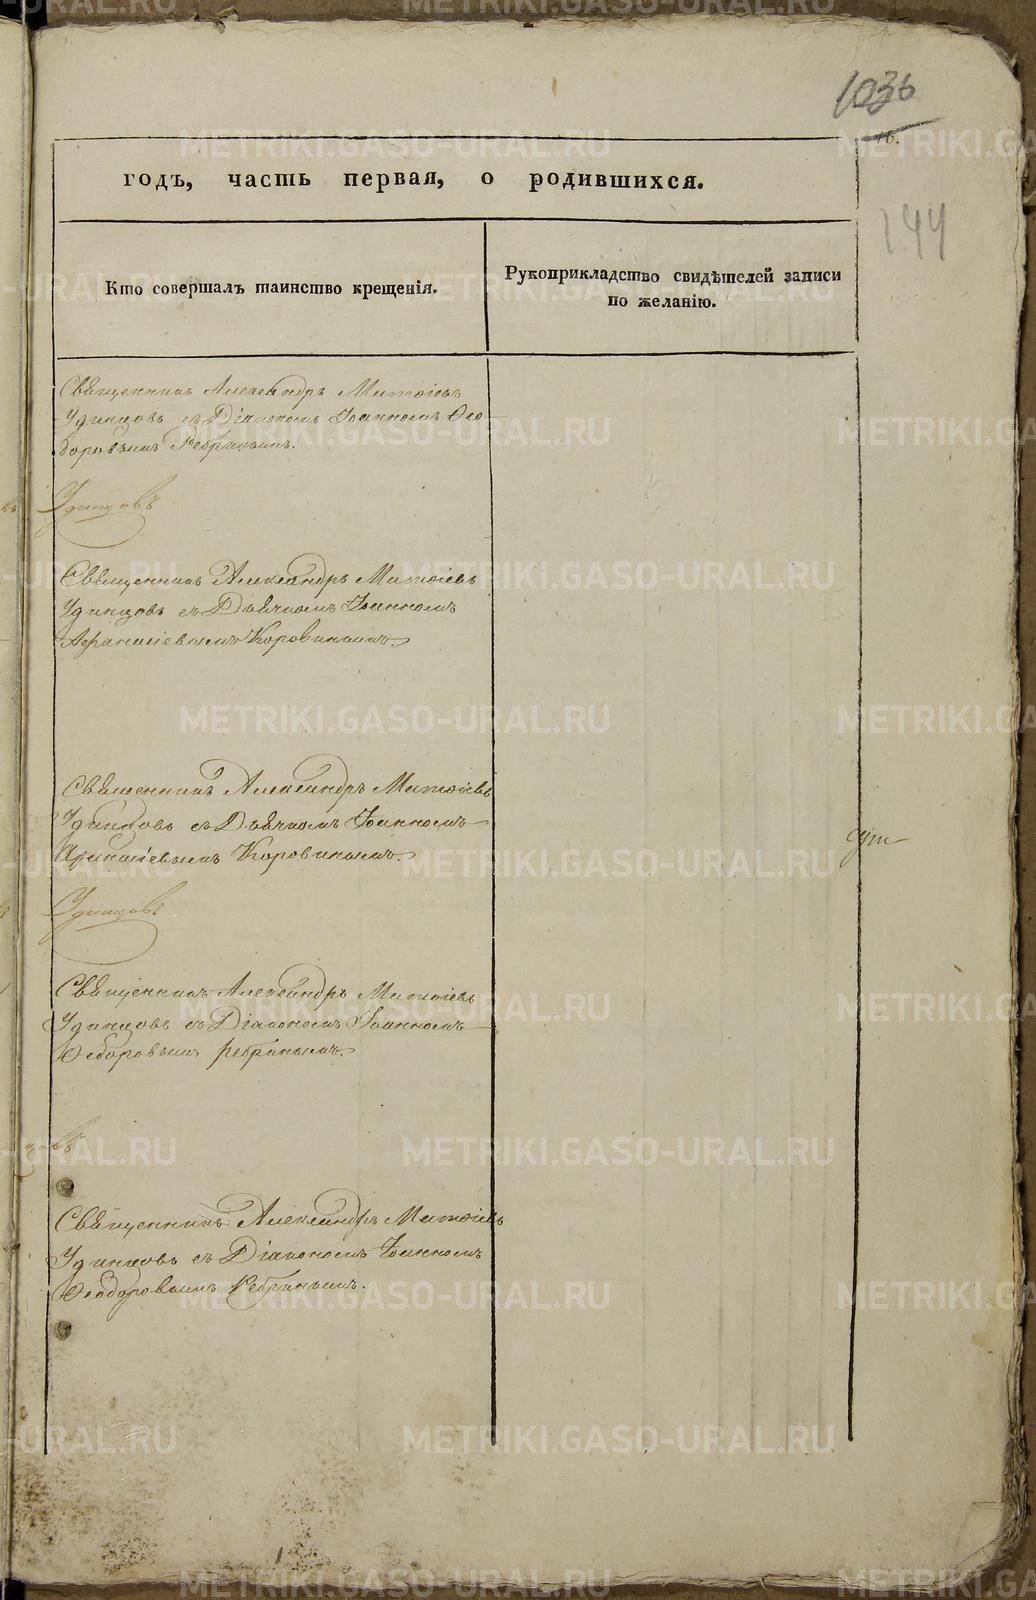 1036
16.
144
годъ, часть первая, о родившихся.
Кто совершалъ таинство крещенія.
Рукоприкладство свидѣтелей записи
по желанію.
Священникъ Александръ Матѳіевъ
Удинцовъ съ Діакономъ Іоанномъ Ѳео
доровымъ Ребринымъ.
Удинцовъ
Священникъ Александръ Матѳіевъ
Удинцовъ съ Дьячкомъ Іоанномъ
Афанасіевымъ Коровинымъ.
Священникъ Александръ Матѳіевъ
Удинцовъ съ Дьячкомъ Іоанномъ
Афанасіевымъ Коровинымъ.
Удинцовъ
Священникъ Александръ Матѳіевъ
Удинцовъ съ Діакономъ Іоанномъ
Ѳедоровымъ Ребринымъ.
Священникъ Александръ Матѳіевъ
Удинцовъ съ Діакономъ Іоанномъ
Ѳеодоровымъ Ребринымъ.
METRIKI.GASO-URAL.RU